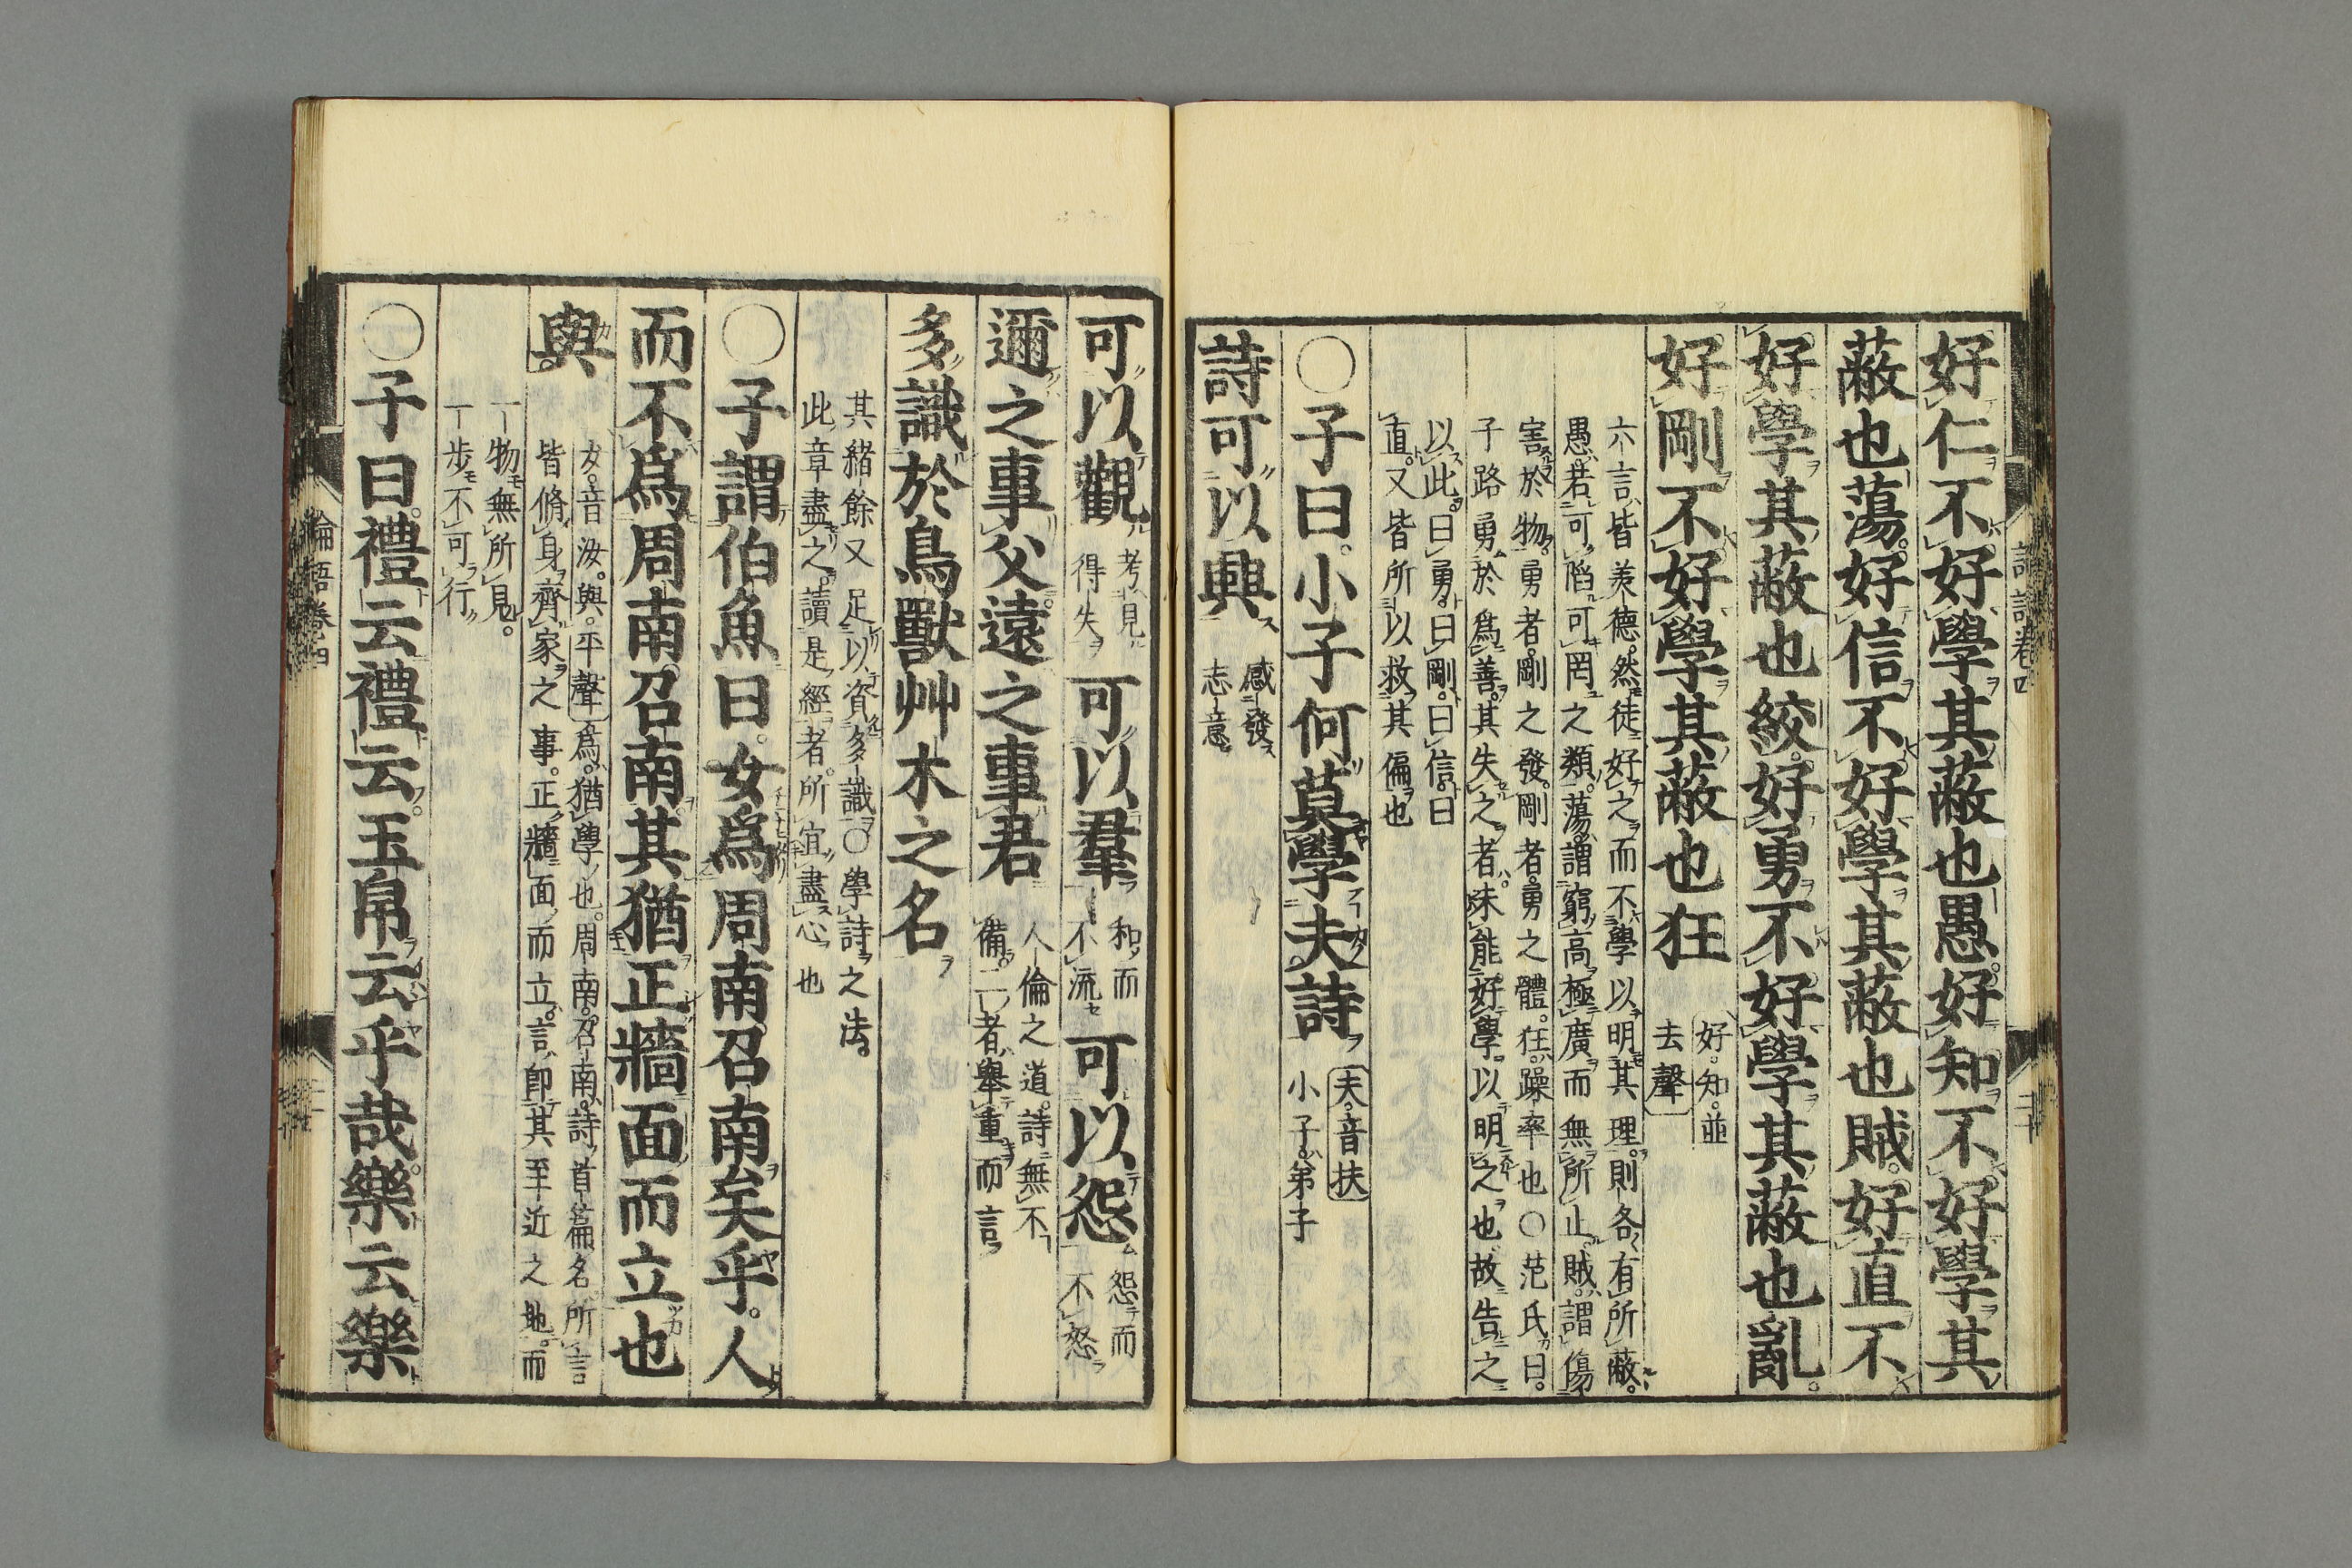 好仁不好學其蔽也愚好知不好學其
蔽也蕩好信不好學其蔽也賊好直不
好學其蔽也絞好勇不好學其蔽也亂
好剛不好學其蔽也狂
好知並
去聲
六言皆美德然徒好之而不學以明其理則各有所蔽
愚若可陷可罔之類蕩謂窮高極廣而無所止賊謂傷
害於物勇者剛之發剛者勇之體狂躁率也〇范氏曰
子路勇於爲善其失之者未能好學以明之也故告之
以此曰勇曰剛曰信曰
直又皆所以救其偏也
〇子曰小子何莫學夫詩
夫音扶
小子弟子
詩可以興
感發
志意
可以觀
考見
得失
可以羣
和而
不流
可以怨
怨而
不怒
邇之事父遠之事君
人倫之道詩無不
備二者舉重而言
多識於鳥獸艸木之名
其緒餘又足以資多識〇學詩之法
此章盡之讀是經者所宜盡心也
〇子謂伯魚曰女爲周南召南矣乎人
而不爲周南召南其猶正牆面而立也
與
女音汝與平聲爲猶學也周南召南詩首篇名所言
皆脩身齊家之事正牆面而立言即其至近之地而
一物無所見
一步不可行
〇子曰禮云禮云玉帛云乎哉樂云樂
論語卷四